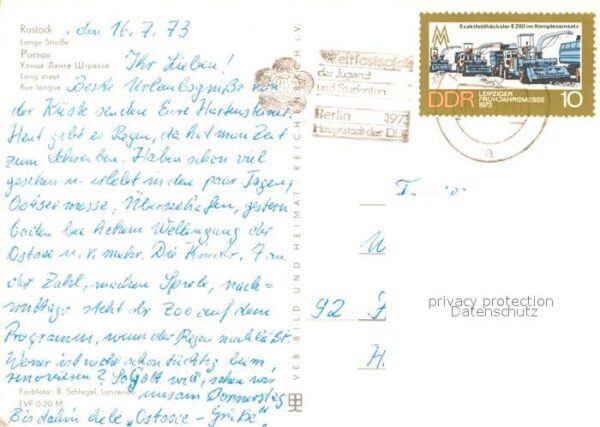 Rostock, den 16.7.73
Lange Straße
Росток
Улица Ланге Штрассе
Long street
Rue longue
Ihr Lieben!
Beste Urlaubsgrüße von
der Küste senden Eure
Heut gibt es Regen, da hat man Zeit
zum Schreiben. Haben schon viel
gesehen u. erlebt in den paar Tagen,
Ostseemesse, Überseehafen, gestern
baden bei hohem Wellengang der
Ostsee u. v. mehr. Die Kinder, 7 an
der Zahl, machen Spiele, nach-
mittags steht der Zoo auf dem
Programm, wenn der Regen nachläßt.
Werner ist wohl schon tüchtig beim
renovieren? So Gott will, sehen wir
uns am Donnerstag
Bis dahin liebe „Ostsee-Grüße“
Farbfoto: R. Schlegel, Lunzenau
EVP 0,20 M
VEB BILD UND HEIMAT REICHENBACH I. V.
Weltfestspiele
der Jugend
und Studenten
Berlin 1973
Hauptstadt der DDR
Exaktfeldhäcksler E 280 im Komplexeinsatz
DDR
LEIPZIGER
FRÜHJAHRSMESSE
1973
10
a
92
H
privacy protection
Datenschutz